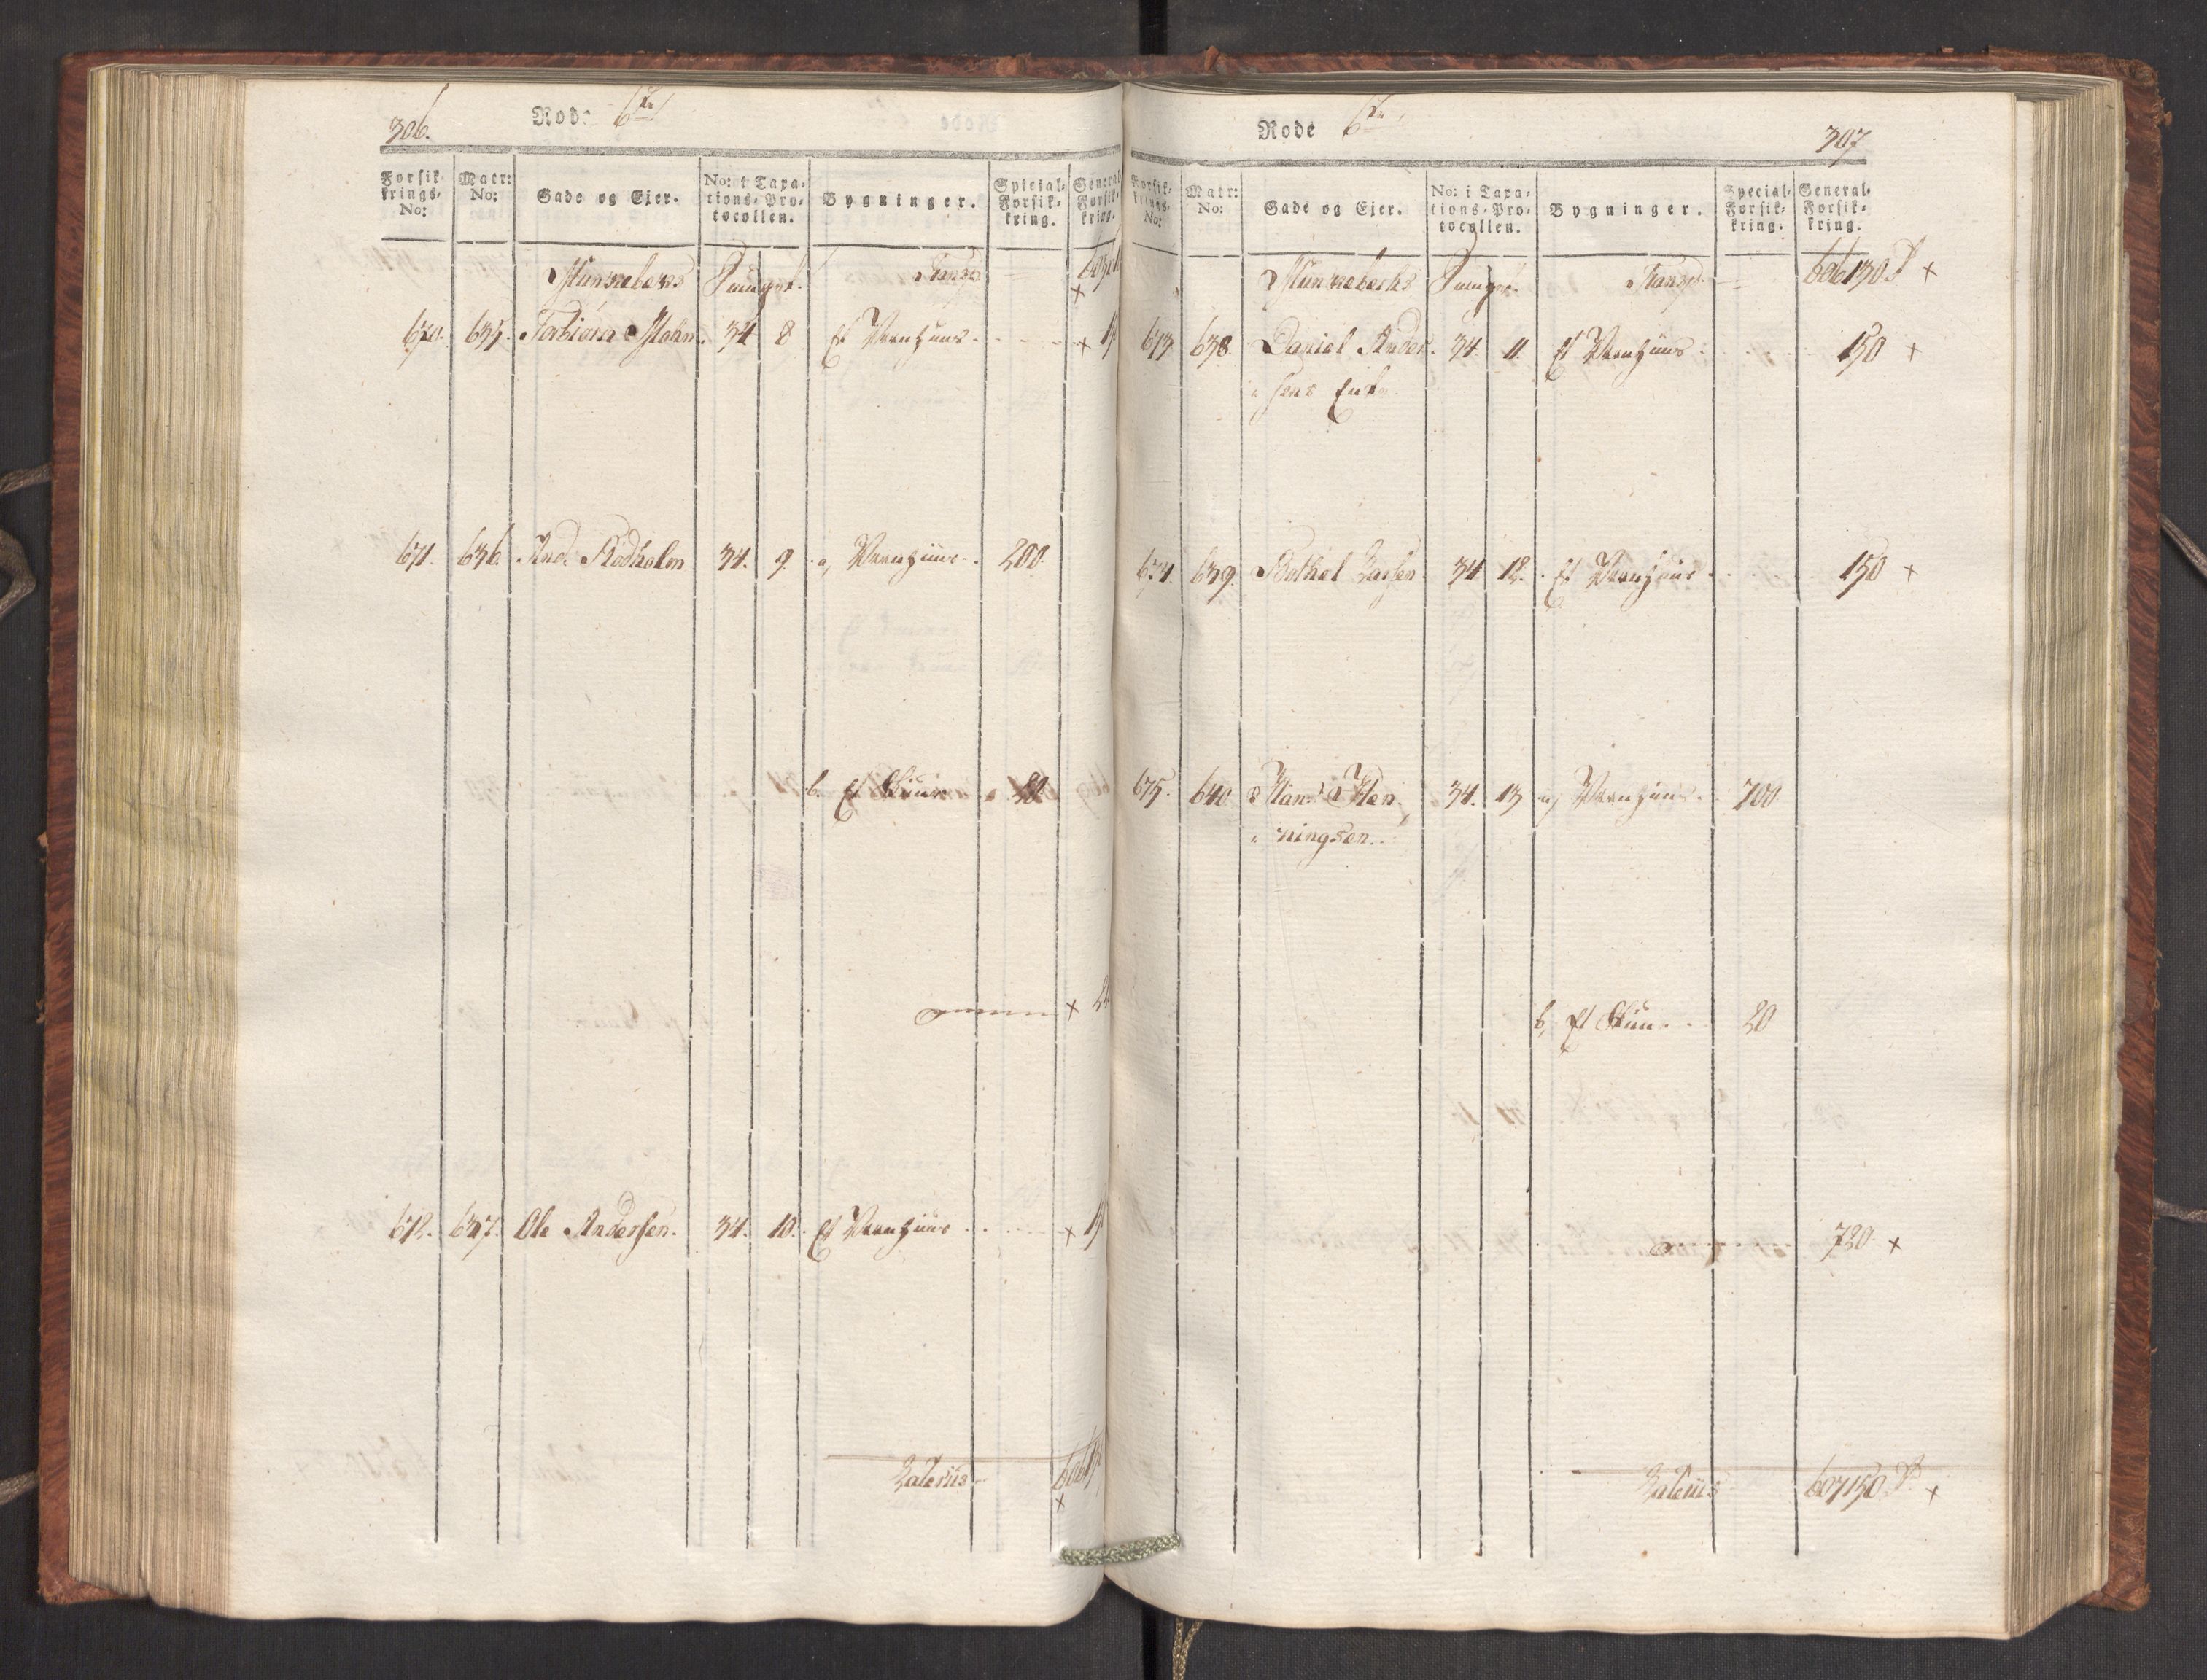 306.
Rode 6te
Forsik-
krings-
No:
Matr:
No:
Gade og Ejer.
No: i Taxa-
tions-Pro-
tocollen.
Bygninger.
Special-
Forsik-
kring.
General
Forsik-
kring.
Transp
670. 635. Torbiörn 34 8 Et Vaanhuus
671. 636. And. Rødholm 34. 9. a, Vaanhuus 200.
b. Et Skuur 20
672. 637. Ole Andersen. 34. 10. Et Vaanhuus
Lateris
Rode 6te
307
Forsik-
krings-
No:
Matr:
No:
Gade og Ejer.
No: i Taxa-
tions-Pro-
tocollen.
Bygninger.
Special-
Forsik-
kring.
General-
Forsik-
kring.
Transp. 606430
673 638. Daniel Ander- 34. 11. Et Vaanhuus 150
sens Enke
674 639. Bethel Larsen 34 12. Et Vaanhuus 150
675. 640 Hans Hen- 34. 13 a, Vaanhuus 700
ningsen.
b, Et Skuur 20
720.
Lateris 607450